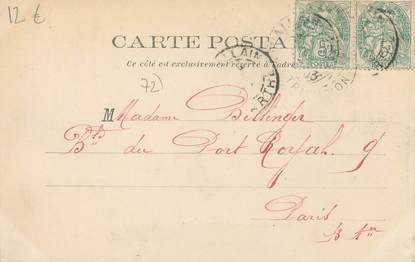 12 €
CARTE POSTA
Ce côté est exclusivement réservé à l'adre
72)
Madame Billenger
Bd du Port Royal, 9
Paris